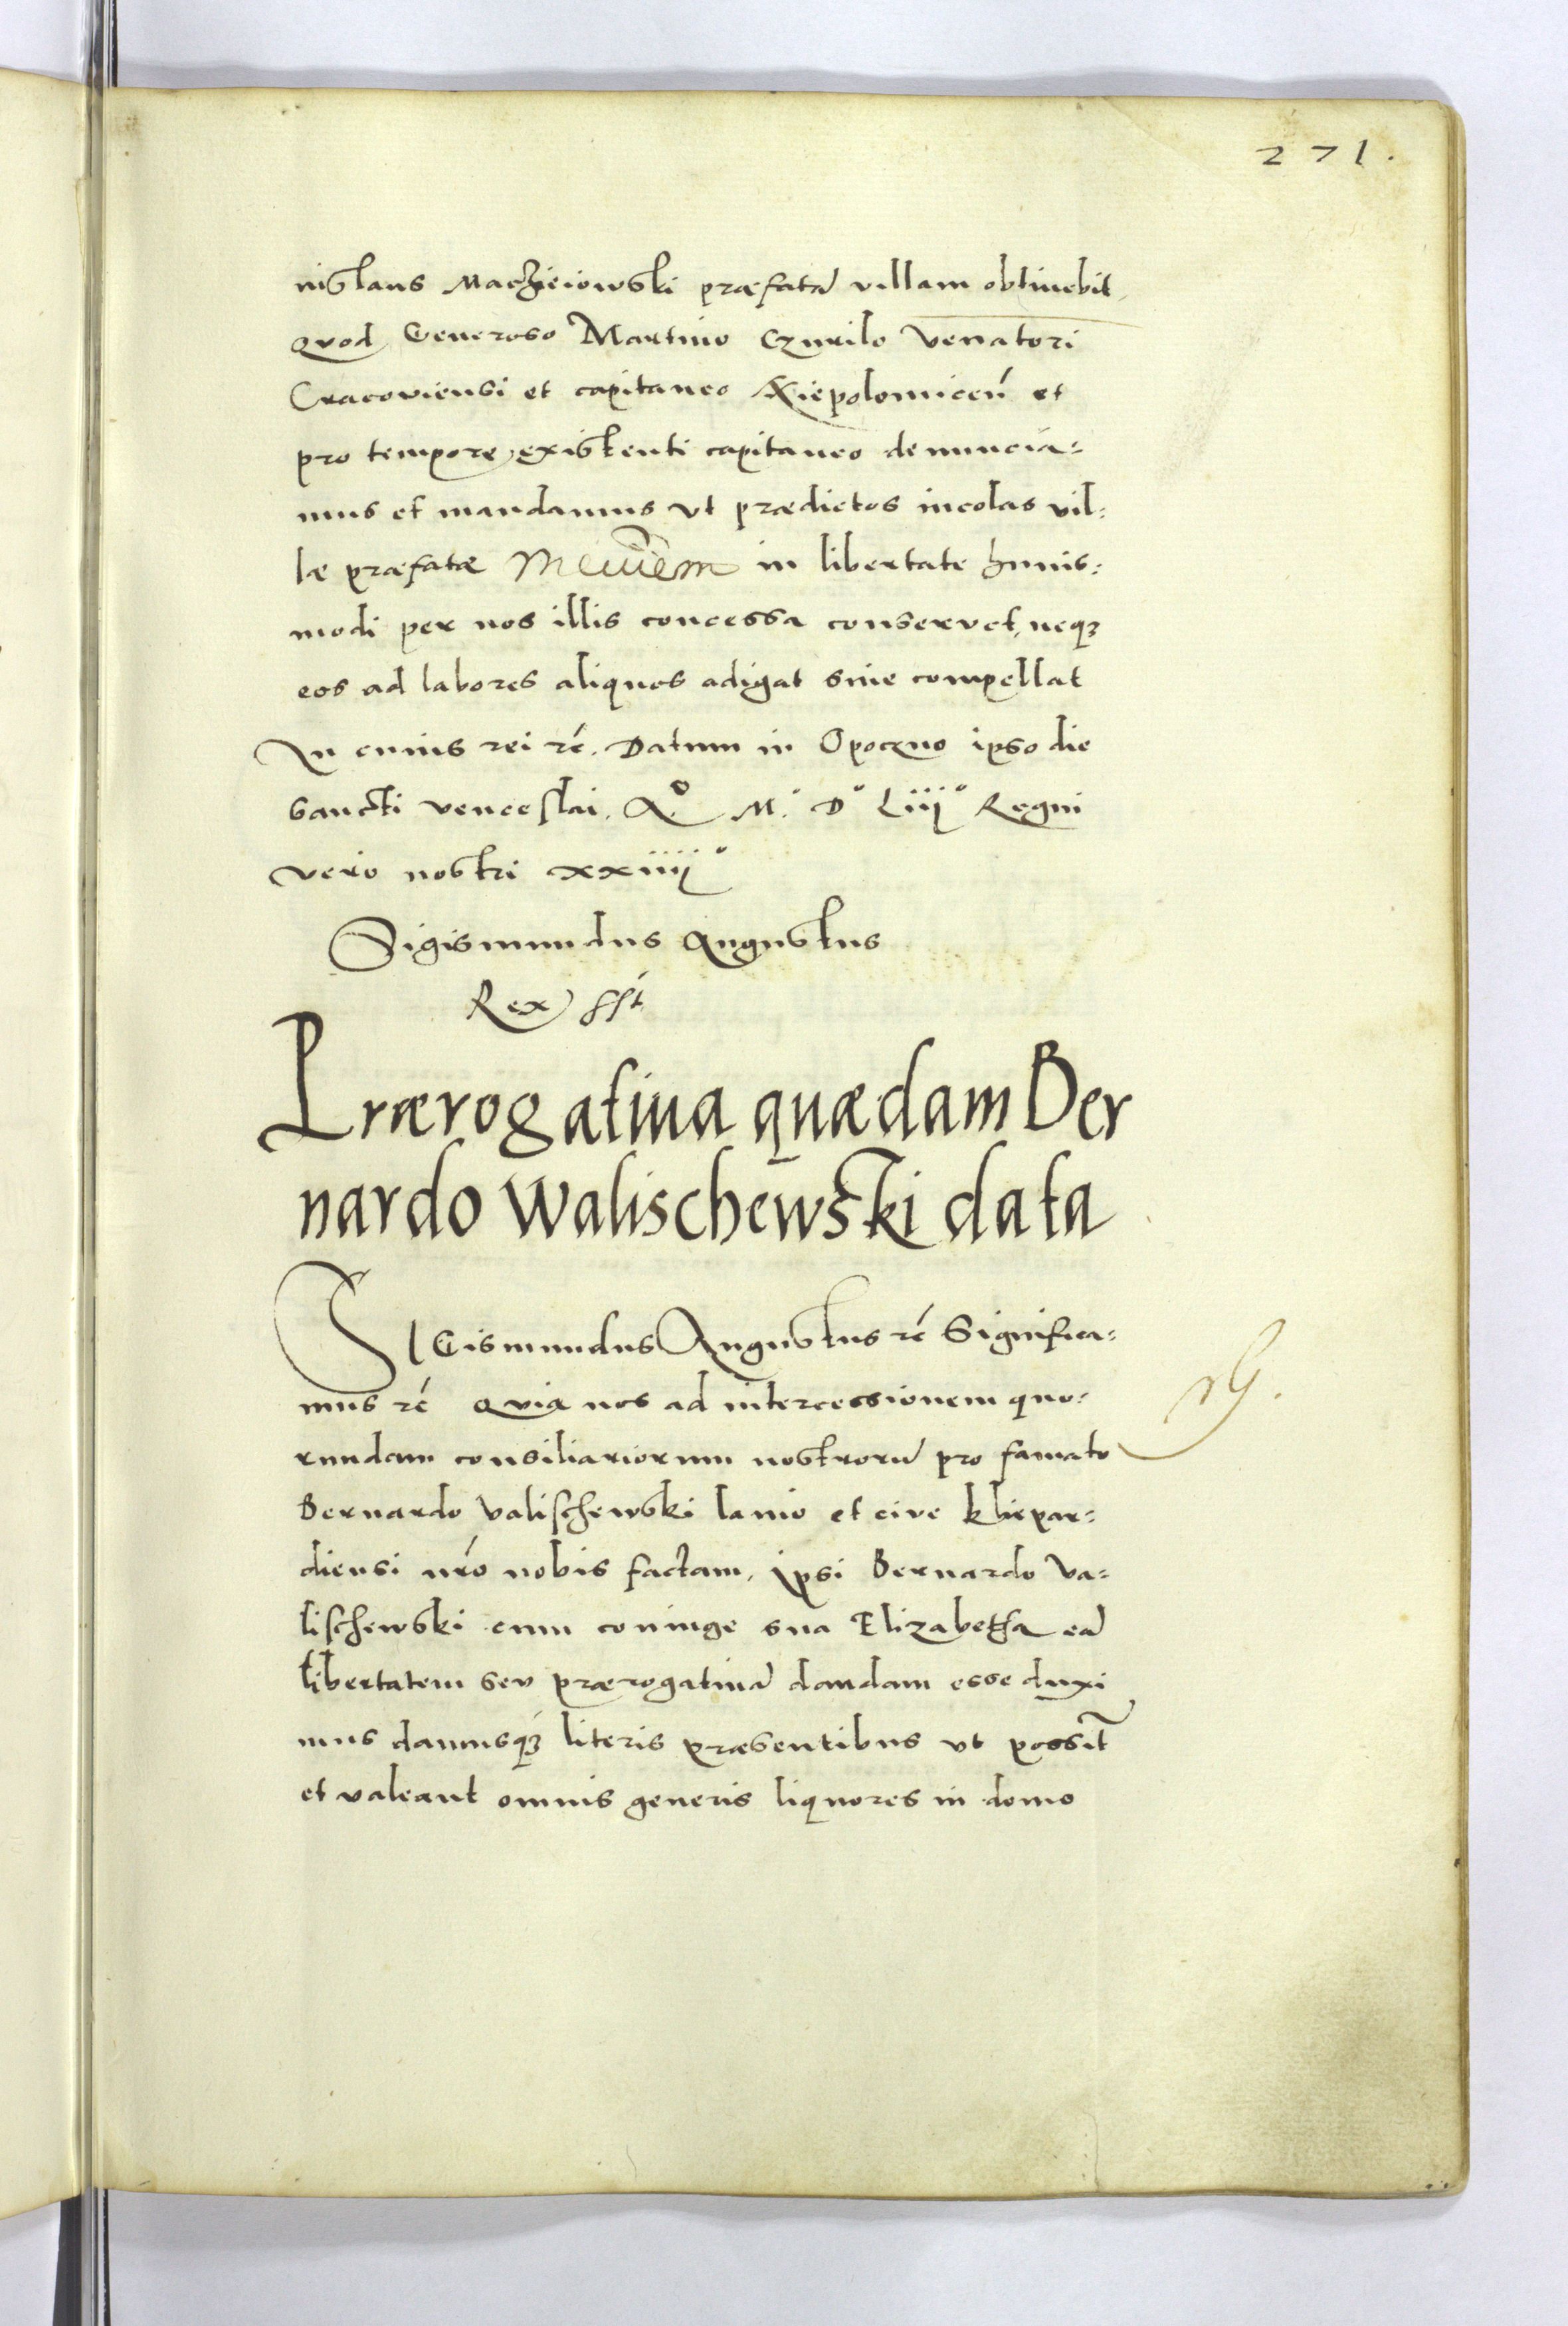 271.
nislaus Maczieiowski præfatã villam obtinebit.
Quod Generoso Martino Czurilo Venatori
Cracoviensi et capitaneo Niepolomiceñ et
pro tempore existenti capitaneo denuncia=
mus et mandamus ut prædictos incolas vil=
læ præfatæ in libertate huius=
modi per nos illis concessa conservet, neqꝫ
eos ad labores aliquos adigat sive compellat
In cuius rei rc̃. Datum in Opoczno ipso die
sancti Venceslai. A.º M.º Dº Liiijº Regni
vero nostri xxiiiijº
Sigismundus Augustus
Rex sst
Prærogatiua quædam Ber
nardo Walischewski data
SIGismundus Augustus rc̃ Significa=
mus rc̃ Quia nos ad intercessionem quo=
rundam consiliariorum nostrorũ pro famato
Bernardo Valischewski lanio et cive Klepar=
diensi nr̃o nobis factam, ipsi Bernardo Va=
lischewski cum coniuge sua Elizabetha eã
libertatem seu prærogatiuã dandam esse duxi
mus damusqꝫ literis præsentibus ut possit
et valeant omnis generis liquores in domo